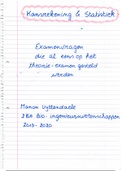 Kansrekening & Statistiek
Examenvragen
die al eens op het
theorie-examen gesteld
werden
Manon Vystendaele
2BA Bio-ingenieurswetenschappen
2019-2020